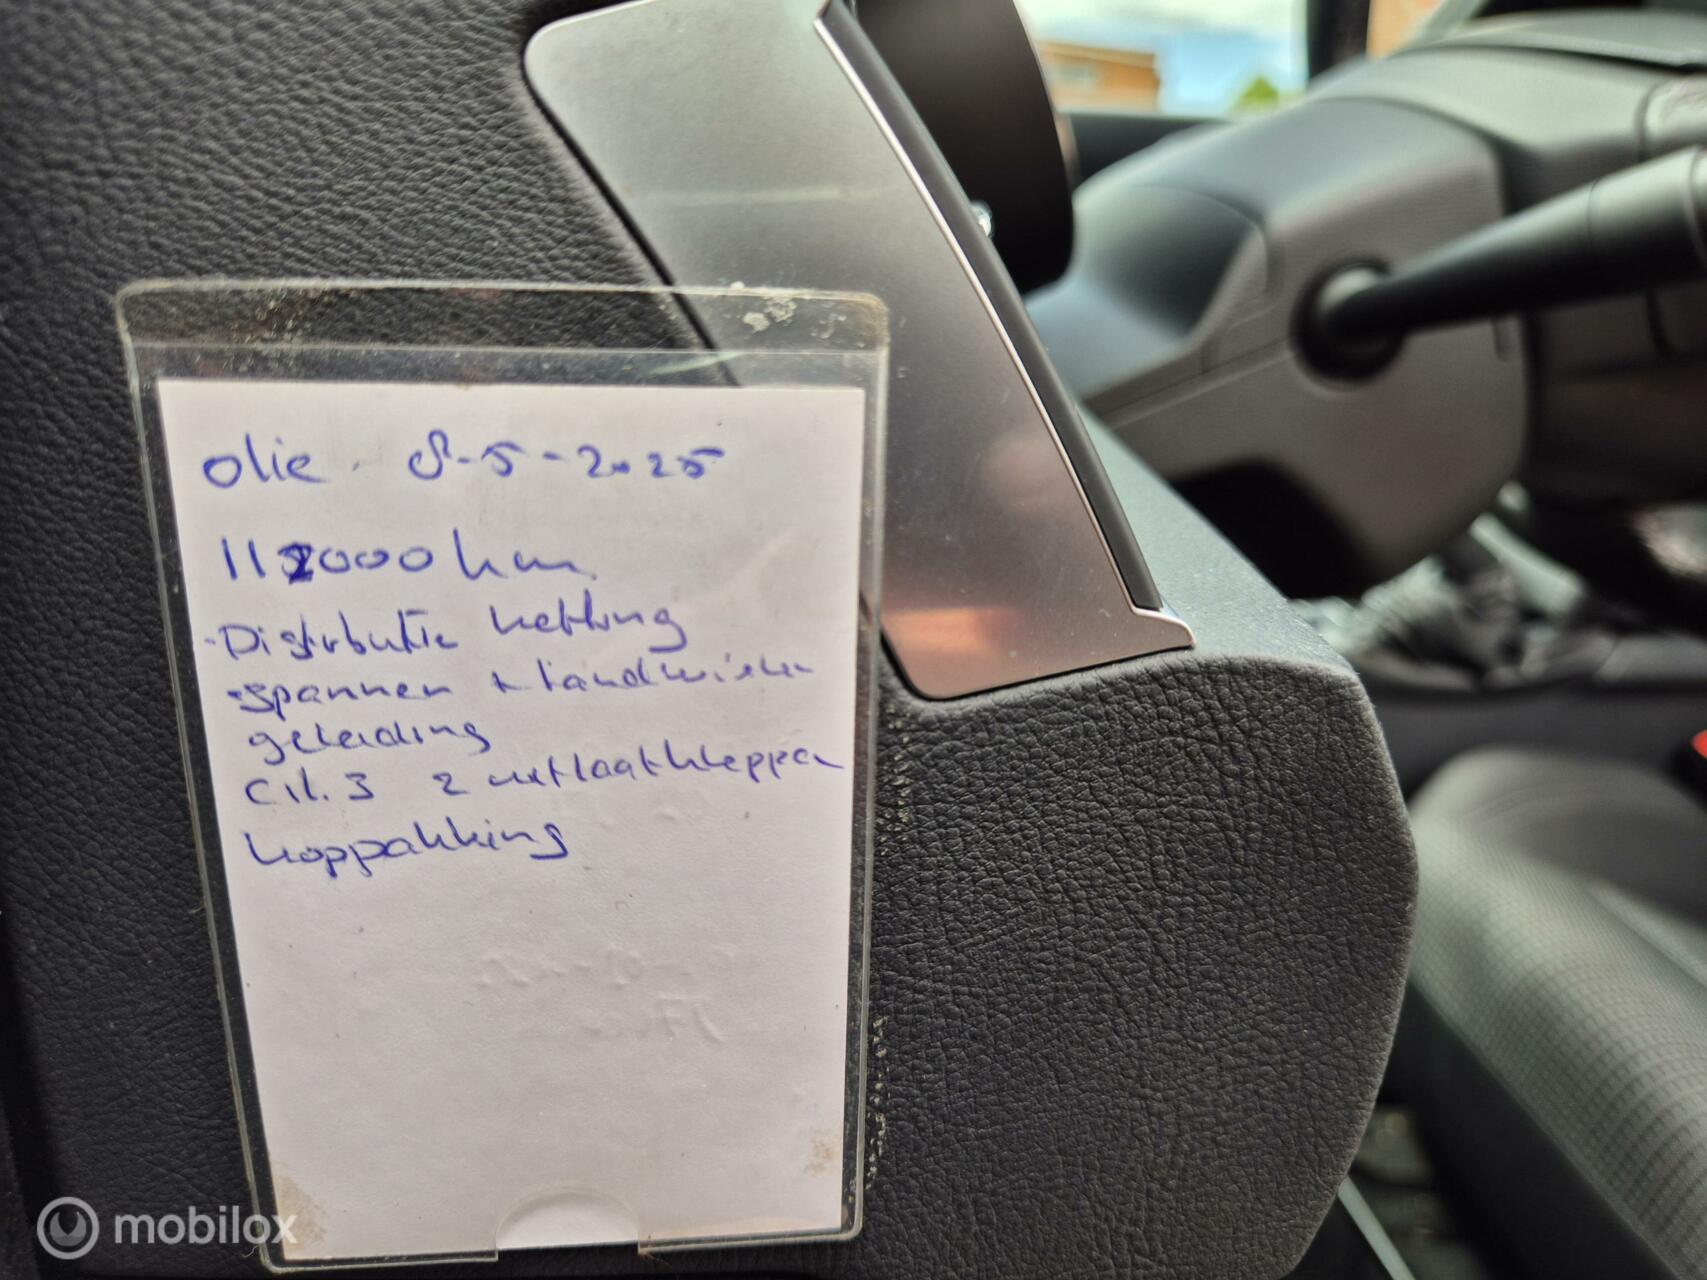 olie 8-5-2025
112000 km
- Distributie ketting
- spanner + tandwielen
geleiding
Cil. 3 2 uitlaatkleppen
koppakking
mobilox